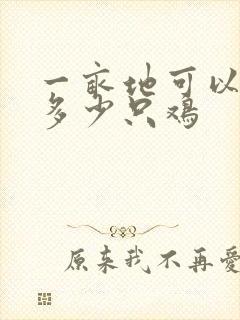 一亩地可以
多少只鸡
原来我不再爱